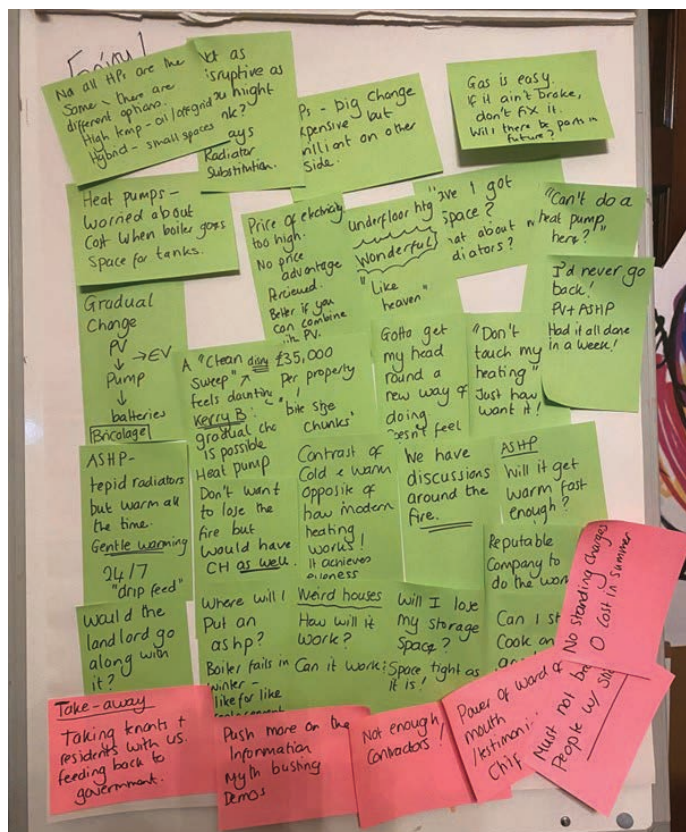 Na all HPs are the
Same, there are
different options.
High temp - oil/offgrid
Hybrid - small spaces
as
disruptive as
might
Radiator
Substitution.
- big change
but
on other
Side.
Gas is easy.
If it ain't broke,
don't fix it.
Will there be parts in
future?
Heat pumps -
Worried about
Cost when boiler goes
Space for tanks.
Price of electricity
too high.
No price
advantage
Percieved.
Better if you
can combine
PV.
Underfloor htg
Wonderful
"Like
heaven"
I got
Space?
about
"Can't do a
heat pump
here?"
I'd never go
back!
PV + ASHP
Had it all done
in a week!
Gradual
Change
PV
→ EV
↓
Pump
↓
batteries
Bricolage
A "Clean
Sweep"
feels daunting
Kerry B:
gradual
is possible
Heat pump
£35,000
Per property
!
"bite size
chunks"
Gotta get
my head
round a
new way of
doing
feel
"Don't
touch my
heating"
Just how
want it!
ASHP -
tepid radiators
but warm all
the time.
Gentle warming
24/7
"drip feed"
Don't want
to lose the
fire but
would have
CH as well.
Contrast of
Cold & warm
Opposite of
how modern
heating
works!
It achieves
We have
discussions
around the
fire.
ASHP
Will it get
warm fast
enough?
Reputable
Company to
do the
Can I
Cook on
Would the
landlord go
along with
it?
Where will I
Put an
ashp?
Boiler fails in
winter -
like for like
Weird houses
How will it
work?
Can it work?
Will I lose
my storage
Space?
Space tight as
it is!
No standing charges
O Cost in Summer
Take-away
Taking tenants +
residents with us.
feeding back to
government.
Push more on the
Information
Myth busting
Demos
Not enough
Contractors!
Power of word of
mouth
Must not
People w/